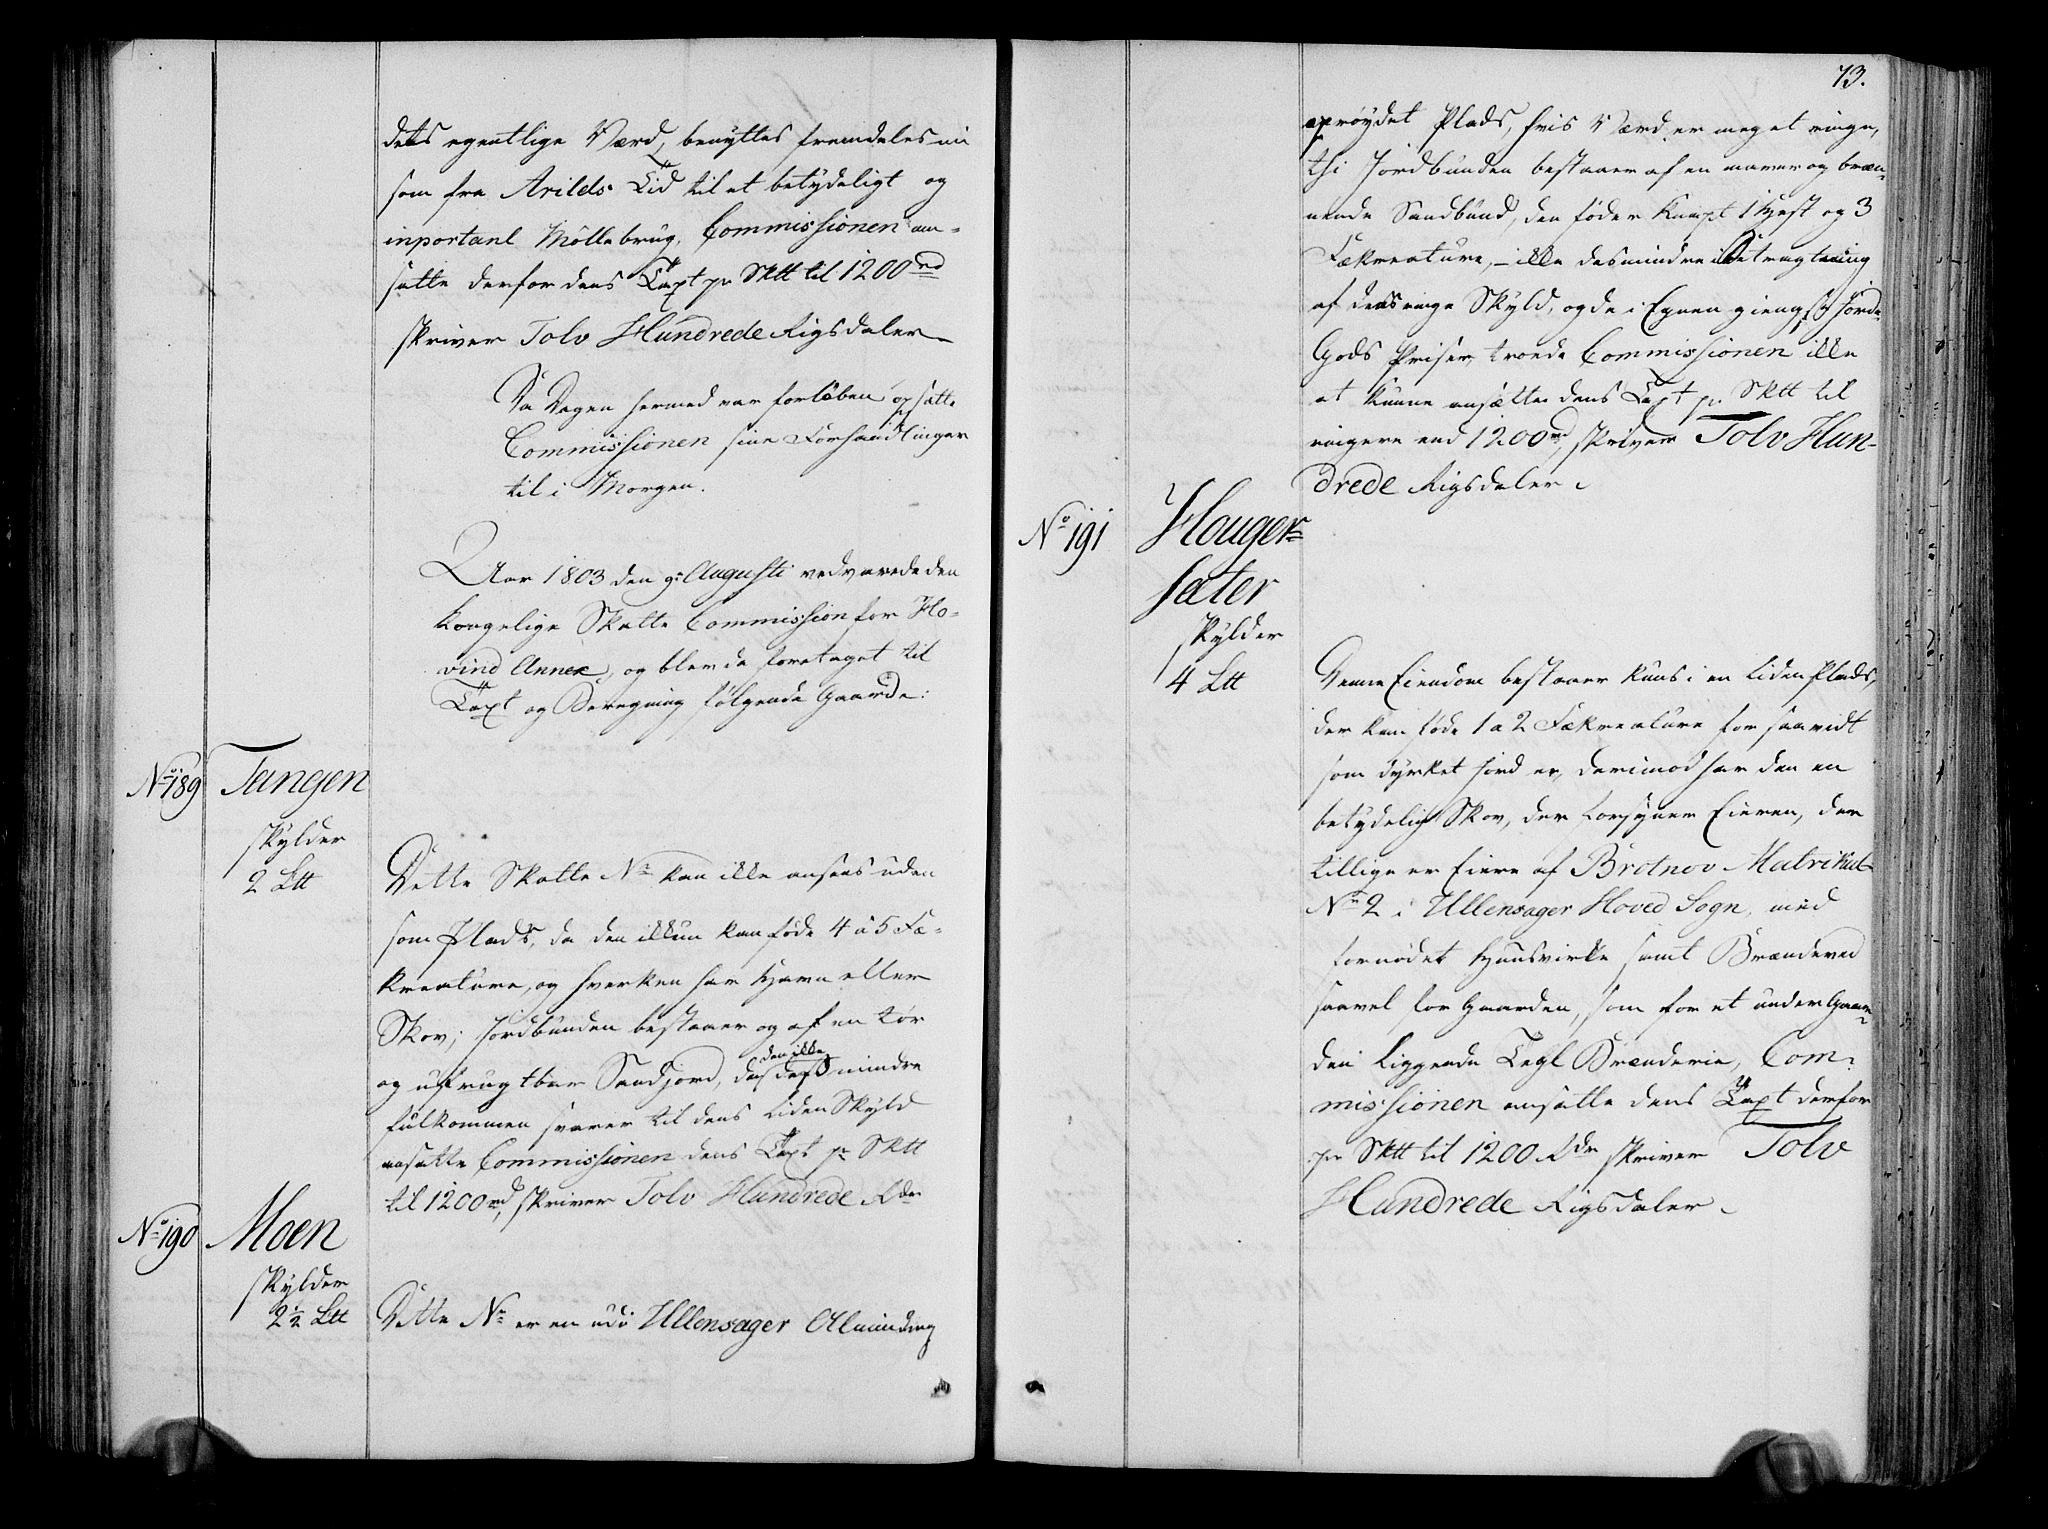 dets egentlige Værd, benyttes fremdeles nu
som fra Arilds Tid til et betydeligt og
inportant Möllebrug, Commissionen an-
satte derfor dens Taxt pr Sktt til 1200 rd
skriver Tolv Hundrede Rigsdaler
Da Dagen hermed var forløben opsatte
Commissionen sine Forhandlinger
til i Morgen.
Aar 1803 den 9: Augusti vedvarede den
kongelige Skatte Commission for Ho-
vind Annex, og blev da foretaget til
Taxt og Beregning følgende Gaarde:
No 189
Tangen
skylder
2 Ltt
Dette Skatte No kan ikke ansees uden
som Plads, da den ikkun kan föde 4 a 5 Fæ-
kreature, og hverken har Havn eller
Skov; Jordbunden bestaaer og af en tör
og ufrugtbar Sandjord, da den ikke desmindre
fulkommen svarer til dens liden Skyld
ansatte Commissionen dens Taxt pr Sktt
til 1200 rd, skriver Tolv Hundrede Rdr
No 190
Moen
skylder
2½ Ltt
Dette No er en udi Ullensager Alminding
73.
oprøydet Plads, hvis Værd er meget ringe,
thi Jordbunden bestaaer af en maver og bræn-
nende Sandbund, den föder knapt 1 Hest og 3
Fækreature, - ikke desmindre i Betragtning
af dens ringe Skyld, og de i Egnen giengse Jorde
Gods Priser, troede Commissionen ikke
at kunne ansætte dens Taxt pr. Sktt til
ringere end 1200 rd, skriver Tolv Hun-
drede Rigsdaler.
No 191
Houger-
sæter
skylder
4 Ltt
Denne Eiendom bestaaer kuns i en liden Plads,
der kan föde 1 a 2 Fækreature for saavidt
som dyrket Jord er, derimod har den en
betydelig Skov, der forsyner Eieren, der
tillige er Eiere af Brotnov Matrikul
No 2 i Ullensager Hoved Sogn, med
fornödet Huusvirke samt Brændeved
saavel for Gaarden, som for et under Gaar-
den liggende Tegl Brænderie, Com-
missionen ansatte dens Taxt derfor
pr Sktt til 1200 Rdr skriver Tolv
Hundrede Rigsdaler.